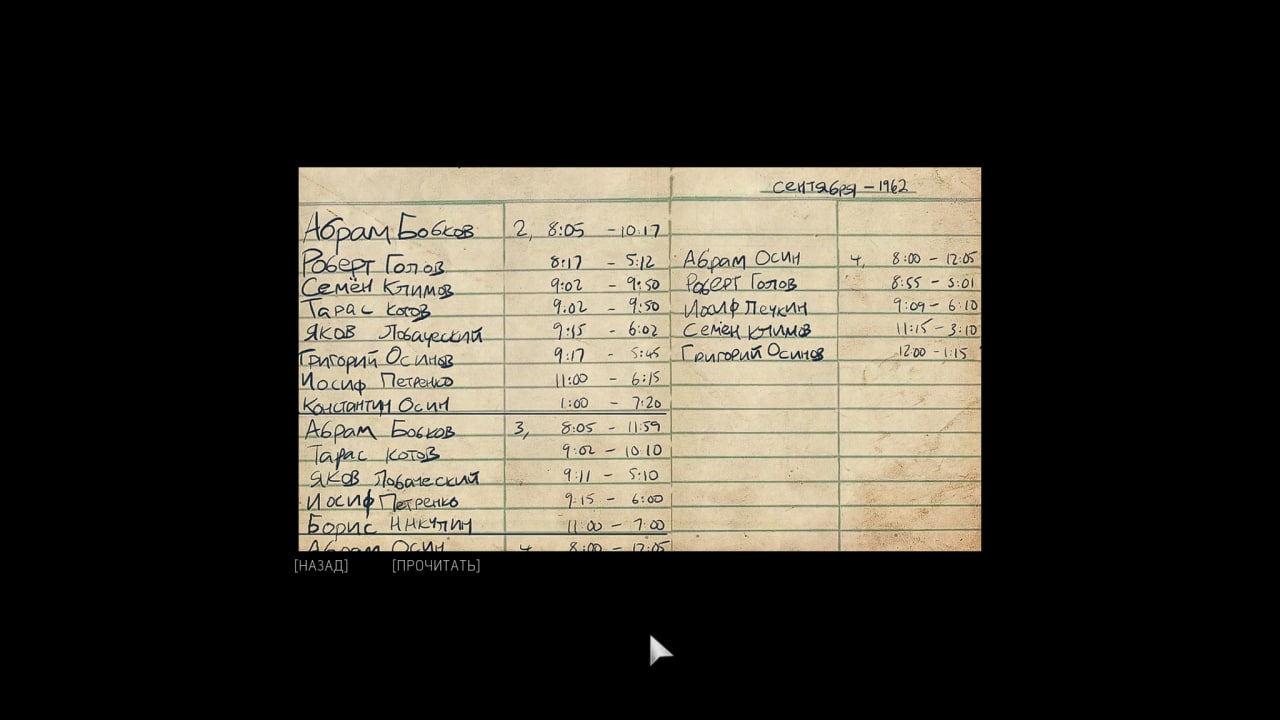 сентября - 1962
Абрам Бобков 2, 8:05 - 10:17
Роберт Голов 8:17 - 5:12
Семён Климов 9:02 - 9:50
Тарас Котов 9:02 - 9:50
Яков Лобаческий 9:15 - 6:02
Григорий Осинов 9:17 - 5:45
Иосиф Петренко 11:00 - 6:15
Константин Осин 1:00 - 7:20
Абрам Бобков 3, 8:05 - 11:59
Тарас Котов 9:02 - 10:10
Яков Лобаческий 9:11 - 5:10
Иосиф Петренко 9:15 - 6:00
Борис Никулин 11:00 - 7:00
Абрам Осин 4, 8:00 - 12:05
Абрам Осин 4, 8:00 - 12:05
Роберт Голов 8:55 - 5:01
Иосиф Печкин 9:09 - 6:10
Семён Климов 11:15 - 3:10
Григорий Осинов 12:00 - 1:15
[НАЗАД] [ПРОЧИТАТЬ]